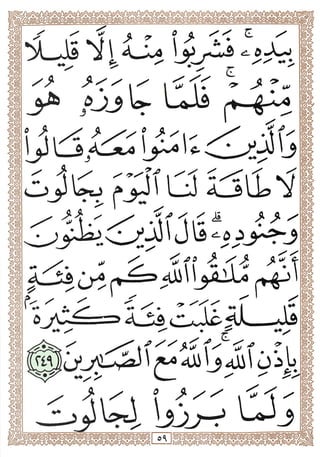 بِيَدِهِۦ ۚ فَشَرِبُوا۟ مِنْهُ إِلَّا قَلِيلًا
مِّنْهُمْ ۚ فَلَمَّا جَاوَزَهُۥ هُوَ
وَٱلَّذِينَ ءَامَنُوا۟ مَعَهُۥ قَالُوا۟
لَا طَاقَةَ لَنَا ٱلْيَوْمَ بِجَالُوتَ
وَجُنُودِهِۦ ۚ قَالَ ٱلَّذِينَ يَظُنُّونَ
أَنَّهُم مُّلَـٰقُوا۟ ٱللَّهِ كَم مِّن فِئَةٍ
قَلِيلَةٍ غَلَبَتْ فِئَةً كَثِيرَةًۢ
بِإِذْنِ ٱللَّهِ ۗ وَٱللَّهُ مَعَ ٱلصَّـٰبِرِينَ ٢٤٩
وَلَمَّا بَرَزُوا۟ لِجَالُوتَ
٥٩